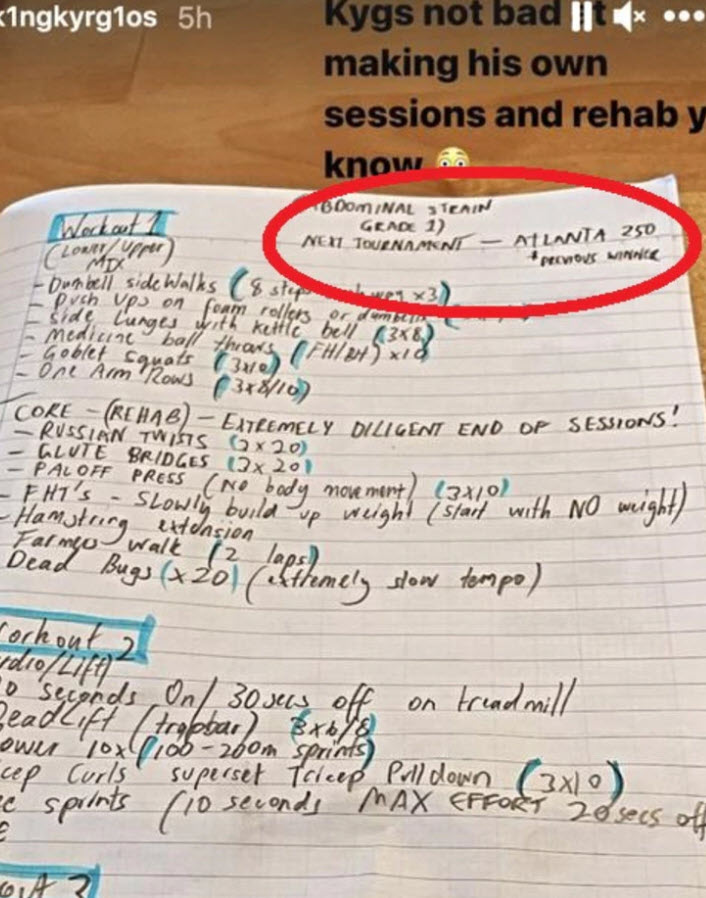 k1ngkyrg1os 5h
Kygs not bad at
making his own
sessions and rehab y
know
BDOMINAL STRAIN
GRADE 1)
NEXT TOURNAMENT — ATLANTA 250
* PREVIOUS WINNER
Workout 1
(Lower/Upper)
MIX
- Dumbell side walks (8 steps each way x3)
- Push Ups on foam rollers or dumbells
- Side Lunges with kettle bell (3x8)
- Medicine ball throws (FH/BH) x10
- Goblet squats (3x10)
- One Arm Rows (3x8/10)
CORE - (REHAB) - EXTREMELY DILIGENT END OF SESSIONS!
- RUSSIAN TWISTS (2x20)
- GLUTE BRIDGES (2x20)
- PALOFF PRESS (No body movement) (3x10)
- FHT's - SLOWLY build up weight (start with NO weight)
- Hamstring extension
Farmers walk (2 laps)
Dead Bugs (x20) (extremely slow tempo)
orkout 2
rdio/Lift)
0 seconds On/ 30 secs off on treadmill
DeadLift (trapbar) 3x6/8
ower 10x (100-200m sprints)
icep Curls superset Tricep Pulldown (3x10)
ke sprints (10 seconds MAX EFFORT 20secs off